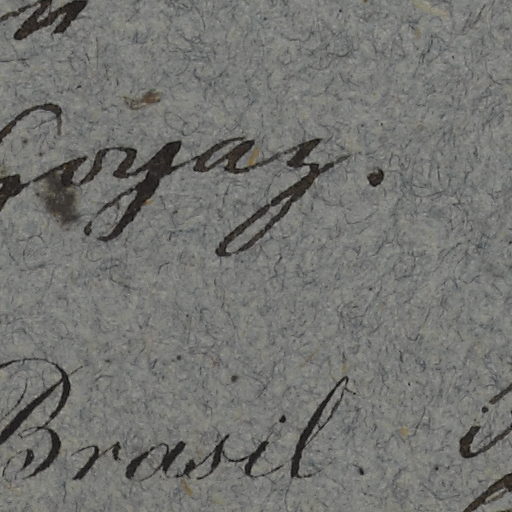 Goyaz.
Brasil.